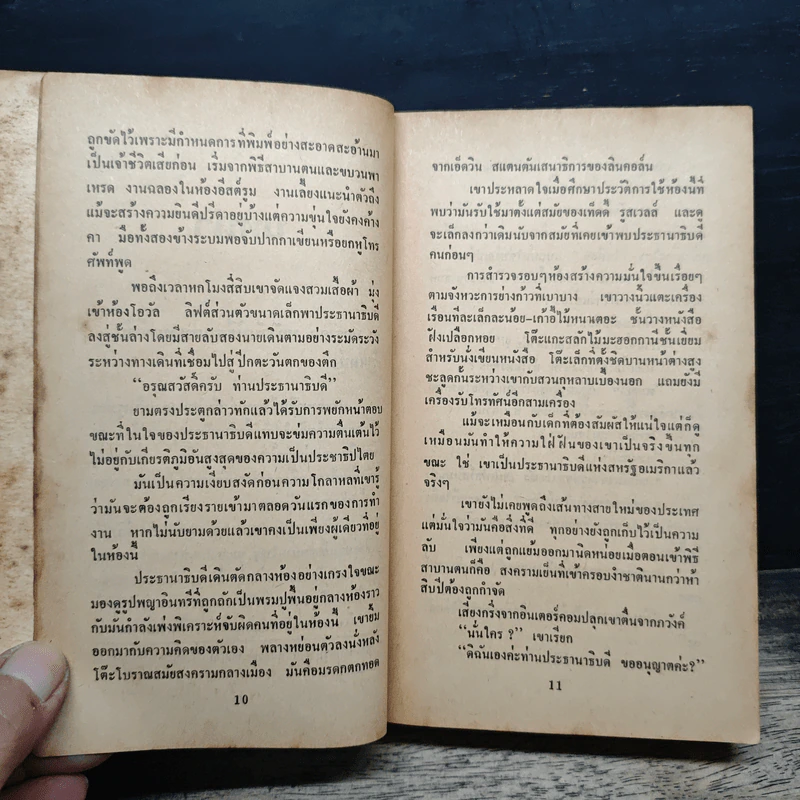 ถูกขัดไว้เพราะมีกำหนดการที่พิมพ์อย่างสะอาดสะอ้านมา
เป็นเจ้าชีวิตเสียก่อน เริ่มจากพิธีสาบานตนและขบวนพา
เหรด งานฉลองในห้องอีสต์รูม งานเลี้ยงแนะนำตัวถึง
แม้จะสร้างความยินดีปรีดาอยู่บ้างแต่ความขุ่นใจยังคงค้าง
คา มือทั้งสองข้างระบมพอจับปากกาเขียนหรือยกหูโทร
ศัพท์พูด
พอถึงเวลาหกโมงสี่สิบเขาจัดแจงสวมเสื้อผ้า มุ่ง
เข้าห้องโอวัล ลิฟต์ส่วนตัวขนาดเล็กพาประธานาธิบดี
ลงสู่ชั้นล่างโดยมีสายลับสองนายเดินตามอย่างระมัดระวัง
ระหว่างทางเดินที่เชื่อมไปสู่ปีกตะวันตกของตึก
“อรุณสวัสดิ์ครับ ท่านประธานาธิบดี”
ยามตรงประตูกล่าวทักแล้วได้รับการพยักหน้าตอบ
ขณะที่ในใจของประธานาธิบดีแทบจะข่มความตื่นเต้นไว้
ไม่อยู่กับเกียรติภูมิอันสูงสุดของความเป็นประชาธิปไตย
มันเป็นความเงียบสงัดก่อนความโกลาหลที่เขารู้
ว่ามันจะต้องถูกเรียงรายเข้ามาตลอดวันแรกของการทำ
งาน หากไม่นับยามด้วยแล้วเขาคงเป็นเพียงผู้เดียวที่อยู่
ในห้องนี้
ประธานาธิบดีเดินตัดกลางห้องอย่างเกรงใจขณะ
มองดูรูปพญาอินทรีที่ถูกถักเป็นพรมปูพื้นอยู่กลางห้องราว
กับมันกำลังเพ่งพิเคราะห์จับผิดคนที่อยู่ในห้องนี้ เขายิ้ม
ออกมากับความคิดของตัวเอง พลางหย่อนตัวลงนั่งหลัง
โต๊ะโบราณสมัยสงครามกลางเมือง มันคือมรดกตกทอด
10
จากเอ็ดวิน สแตนตันเสนาธิการของลินคอล์น
เขาประหลาดใจเมื่อศึกษาประวัติการใช้ห้องนี้ที่
พบว่ามันรับใช้มาตั้งแต่สมัยของเท็ดดี้ รูสเวลล์ และดู
จะเล็กลงกว่าเดิมนับจากสมัยที่เคยเข้าพบประธานาธิบดี
คนก่อนๆ
การสำรวจรอบๆห้องสร้างความมั่นใจขึ้นเรื่อยๆ
ตามจังหวะการย่างก้าวที่เบาบาง เขาวางนิ้วแตะเครื่อง
เรือนทีละเล็กละน้อย-เก้าอี้ไม้หนาเตอะ ชั้นวางหนังสือ
ฝังเปลือกหอย โต๊ะแกะสลักไม้มะฮอกกานีชั้นเยี่ยม
สำหรับนั่งเขียนหนังสือ โต๊ะเล็กที่ตั้งชิดบานหน้าต่างสูง
ชะลูดกั้นระหว่างเขากับสวนกุหลาบเบื้องนอก แถมยังมี
เครื่องรับโทรทัศน์อีกสามเครื่อง
แม้จะเหมือนกับเด็กที่ต้องสัมผัสให้แน่ใจแต่ก็ดู
เหมือนมันทำให้ความใฝ่ฝันของเขาเป็นจริงขึ้นทุก
ขณะ ใช่ เขาเป็นประธานาธิบดีแห่งสหรัฐอเมริกาแล้ว
จริงๆ
เขายังไม่เคยพูดถึงเส้นทางสายใหม่ของประเทศ
แต่มั่นใจว่ามันคือสิ่งที่ดี ทุกอย่างยังถูกเก็บไว้เป็นความ
ลับ เพียงแต่ถูกแย้มออกมานิดหน่อยเมื่อตอนเข้าพิธี
สาบานตนก็คือ สงครามเย็นที่เข้าครอบงำชาตินานกว่าห้า
สิบปีต้องถูกกำจัด
เสียงกริ่งจากอินเตอร์คอมปลุกเขาตื่นจากภวังค์
“นั่นใคร ?” เขาเรียก
“ดิฉันเองค่ะท่านประธานาธิบดี ขออนุญาตค่ะ?”
11